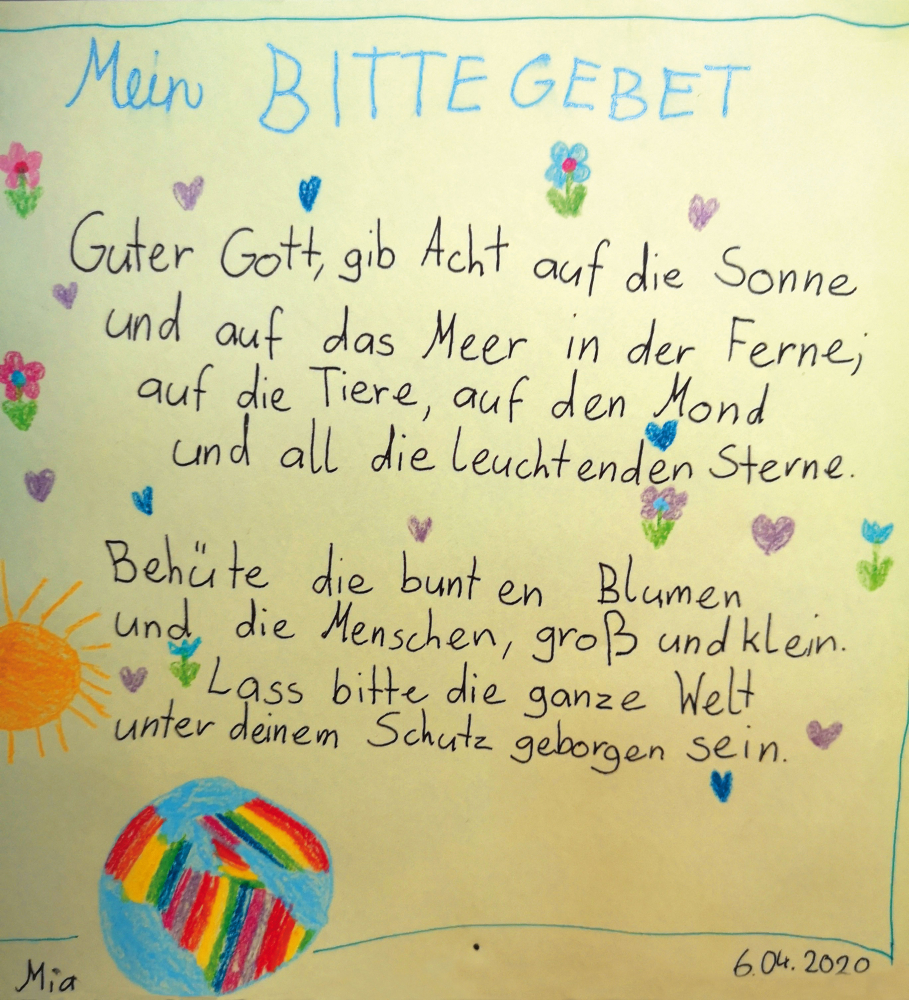 Mein BITTEGEBET
Guter Gott, gib Acht auf die Sonne
und auf das Meer in der Ferne;
auf die Tiere, auf den Mond
und all die leuchtenden Sterne.
Behüte die bunten Blumen
und die Menschen, groß und klein.
Lass bitte die ganze Welt
unter deinem Schutz geborgen sein.
Mia
6.04.2020